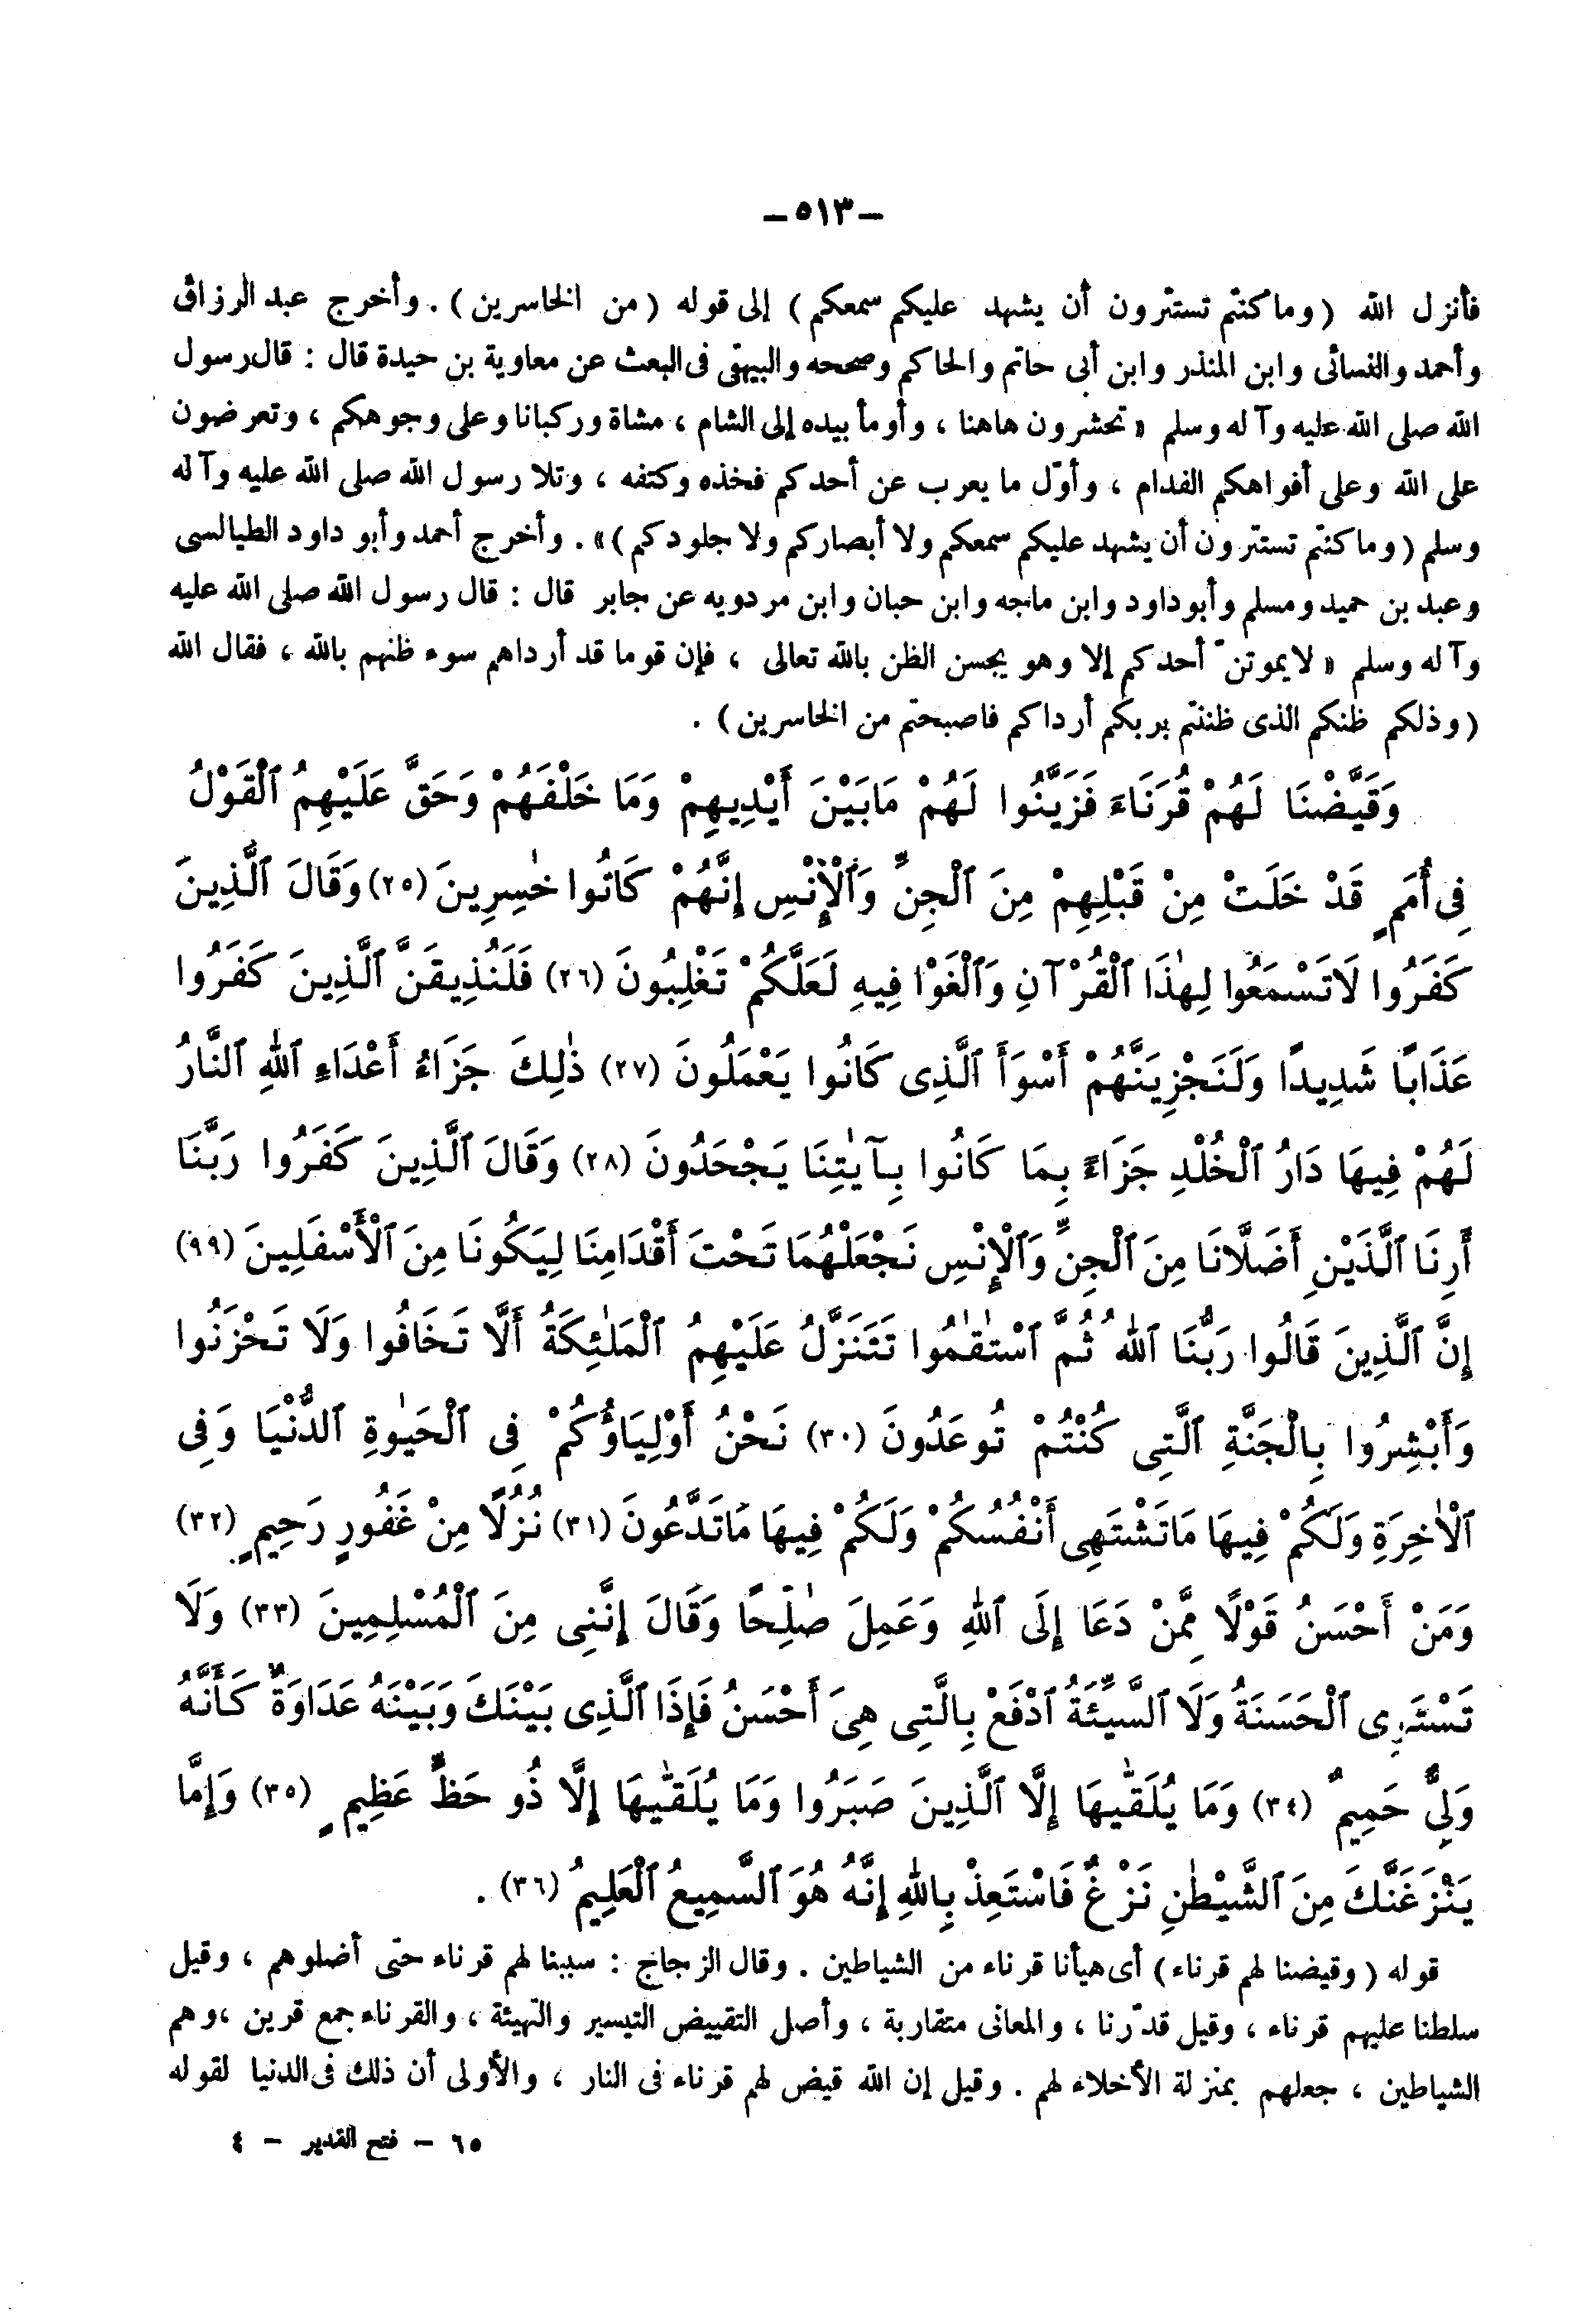 – ٥١٣ –
فأنزل الله ( وما كنتم تستترون أن يشهد عليكم سمعكم ) إلى قوله ( من الخاسرين ) . وأخرج عبد الرزاق
وأحمد والنسائى وابن المنذر وابن أبى حاتم والحاكم وصححه والبيهقى فى البعث عن معاوية بن حيدة قال : قال رسول
الله صلى الله عليه وآله وسلم « تحشرون هاهنا ، وأومأ بيده إلى الشام ، مشاة وركبانا وعلى وجوهكم ، وتعرضون
على الله وعلى أفواهكم الفدام ، وأوّل ما يعرب عن أحدكم فخذه وكتفه ، وتلا رسول الله صلى الله عليه وآله
وسلم ( وما كنتم تستترون أن يشهد عليكم سمعكم ولا أبصاركم ولا جلودكم ) » . وأخرج أحمد وأبو داود الطيالسى
وعبد بن حميد ومسلم وأبو داود وابن ماجه وابن حبان وابن مردويه عن جابر قال : قال رسول الله صلى الله عليه
وآله وسلم « لا يموتنّ أحدكم إلا وهو يحسن الظن بالله تعالى ، فإن قوما قد أرداهم سوء ظنهم بالله ، فقال الله
( وذلكم ظنكم الذى ظننتم بربكم أرداكم فاصبحتم من الخاسرين ) .
وَقَيَّضْنَا لَهُمْ قُرَنَاءَ فَزَيَّنُوا لَهُمْ مَابَيْنَ أَيْدِيهِمْ وَمَا خَلْفَهُمْ وَحَقَّ عَلَيْهِمُ ٱلْقَوْلُ
فِى أُمَمٍ قَدْ خَلَتْ مِنْ قَبْلِهِمْ مِنَ ٱلْجِنِّ وَٱلْإِنْسِ إِنَّهُمْ كَانُوا خٰسِرِينَ (٢٥) وَقَالَ ٱلَّذِينَ
كَفَرُوا لَاتَسْمَعُوا لِهٰذَا ٱلْقُرْآنِ وَٱلْغَوْا فِيهِ لَعَلَّكُمْ تَغْلِبُونَ (٢٦) فَلَنُذِيقَنَّ ٱلَّذِينَ كَفَرُوا
عَذَابًا شَدِيدًا وَلَنَجْزِيَنَّهُمْ أَسْوَأَ ٱلَّذِى كَانُوا يَعْمَلُونَ (٢٧) ذٰلِكَ جَزَاءُ أَعْدَاءِ ٱللهِ ٱلنَّارُ
لَهُمْ فِيهَا دَارُ ٱلْخُلْدِ جَزَاءً بِمَا كَانُوا بِـآيٰتِنَا يَجْحَدُونَ (٢٨) وَقَالَ ٱلَّذِينَ كَفَرُوا رَبَّنَا
أَرِنَا ٱلَّذَيْنِ أَضَلَّانَا مِنَ ٱلْجِنِّ وَٱلْإِنْسِ نَجْعَلْهُمَا تَحْتَ أَقْدَامِنَا لِيَكُونَا مِنَ ٱلْأَسْفَلِينَ (٩٩)
إِنَّ ٱلَّذِينَ قَالُوا رَبُّنَا ٱللهُ ثُمَّ ٱسْتَقٰمُوا تَتَنَزَّلُ عَلَيْهِمُ ٱلْمَلٰئِكَةُ أَلَّا تَخَافُوا وَلَا تَحْزَنُوا
وَأَبْشِرُوا بِالْجَنَّةِ ٱلَّتِى كُنْتُمْ تُوعَدُونَ (٣٠) نَحْنُ أَوْلِيَاؤُكُمْ فِى ٱلْحَيٰوةِ ٱلدُّنْيَا وَفِى
ٱلْأٰخِرَةِ وَلَكُمْ فِيهَا مَاتَشْتَهِى أَنْفُسُكُمْ وَلَكُمْ فِيهَا مَاتَدَّعُونَ (٣١) نُزُلًا مِنْ غَفُورٍ رَحِيمٍ (٣٢)
وَمَنْ أَحْسَنُ قَوْلًا مِمَّنْ دَعَا إِلَى ٱللهِ وَعَمِلَ صٰلِحًا وَقَالَ إِنَّنِى مِنَ ٱلْمُسْلِمِينَ (٣٣) وَلَا
تَسْتَوِى ٱلْحَسَنَةُ وَلَا ٱلسَّيِّئَةُ ٱدْفَعْ بِالَّتِى هِىَ أَحْسَنُ فَإِذَا ٱلَّذِى بَيْنَكَ وَبَيْنَهُ عَدَاوَةٌ كَأَنَّهُ
وَلِىٌّ حَمِيمٌ (٣٤) وَمَا يُلَقّٰيهَا إِلَّا ٱلَّذِينَ صَبَرُوا وَمَا يُلَقّٰيهَا إِلَّا ذُو حَظٍّ عَظِيمٍ (٣٥) وَإِمَّا
يَنْزَغَنَّكَ مِنَ ٱلشَّيْطٰنِ نَزْغٌ فَاسْتَعِذْ بِاللهِ إِنَّهُ هُوَ ٱلسَّمِيعُ ٱلْعَلِيمُ (٣٦) .
قوله ( وقيضنا لهم قرناء ) أى هيأنا قرناء من الشياطين . وقال الزجاج : سببنا لهم قرناء حتى أضلوهم ، وقيل
سلطنا عليهم قرناء ، وقيل قدّرنا ، والمعانى متقاربة ، وأصل التقييض التيسير والتهيئة ، والقرناء جمع قرين ، وهم
الشياطين ، جعلهم بمنزلة الأخلاء لهم . وقيل إن الله قيض لهم قرناء فى النار ، والأولى أن ذلك فى الدنيا لقوله
٦٥ – فتح القدير – ٤